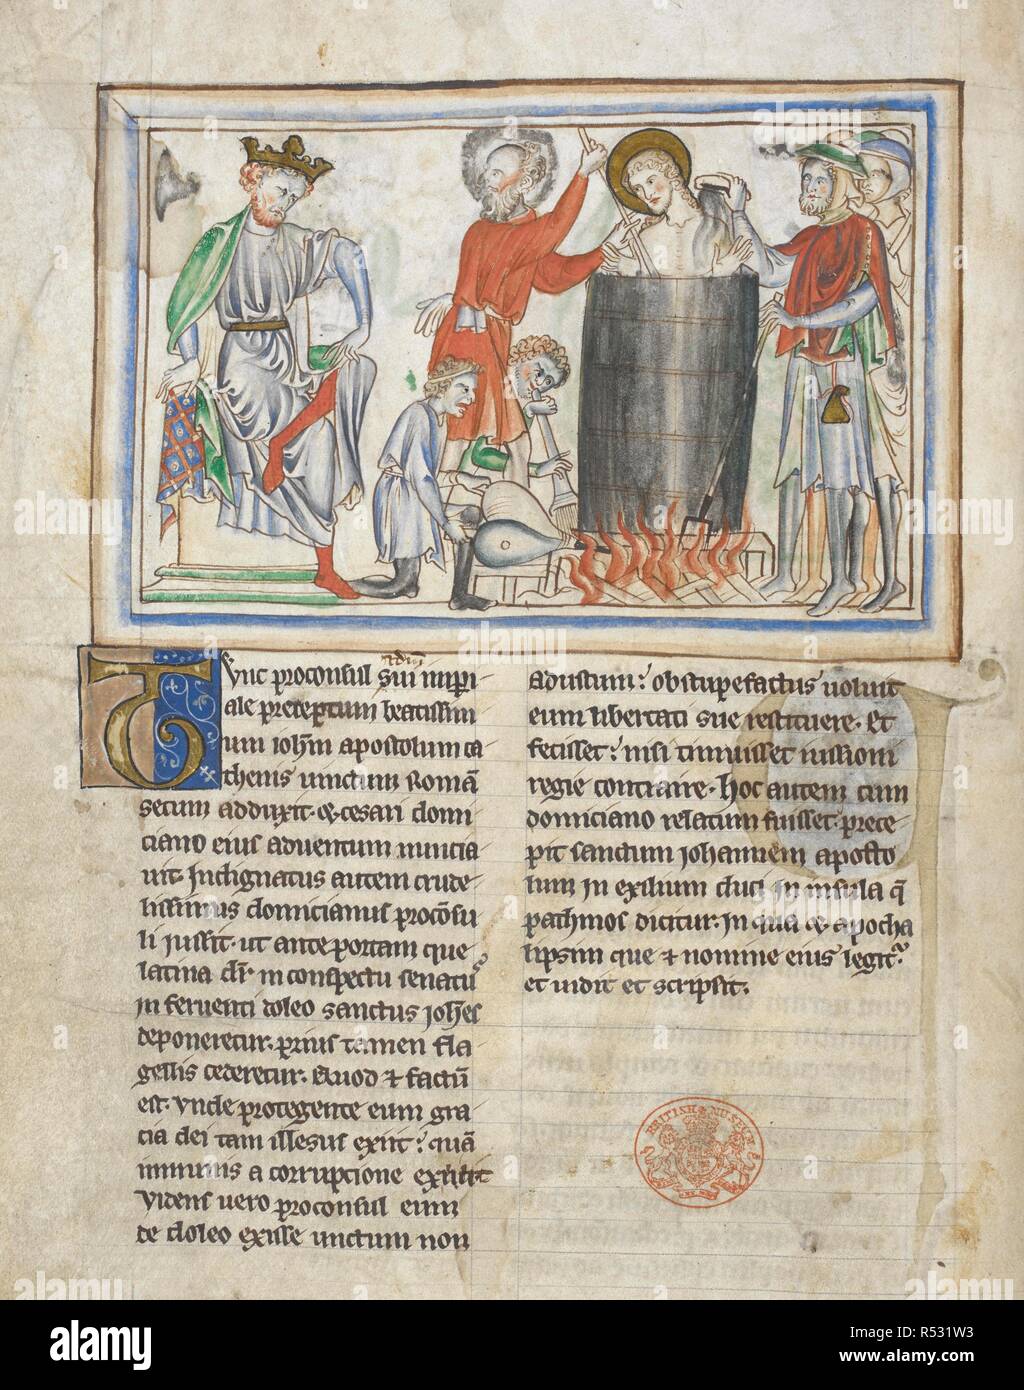 Tunc proconsul s̶u̶i̶ imperi-
ale preceptum beatissim
um ioh̅m apostolum ca-
thenis uinctum Romā
secum adduxit. et cesari domi-
ciano eius aduentum nuncia-
uit. Indignatus autem crude-
lissimus domicianus procōsu-
li iussit. ut ante portam que
latina dr̄ in conspectu senatus
in feruenti doleo sanctus ioħes
deponeretur. prius tamen fla-
gellis cederetur. Quod et factū
est. vnde protegente eum gra-
cia dei tam illesus exiit: quā
immunis a corrupcione extitit
Videns uero proconsul eum
de doleo exisse unctum non
adustum: obstupefactus uoluit
eum libertati sue restituere. Et
fecisset: nisi timuisset iussioni
regie contraire. hoc autem cum
domiciano relatum fuisset. prece-
pit sanctum iohannem aposto
lum in exilium duci in insula q̄
pathmos dicitur. in qua et apocha
lipsim que et nomine eius legit᷑.
et uidit et scripsit.
BRITISH MUSEUM
alamy
Image ID: R531W3
www.alamy.com